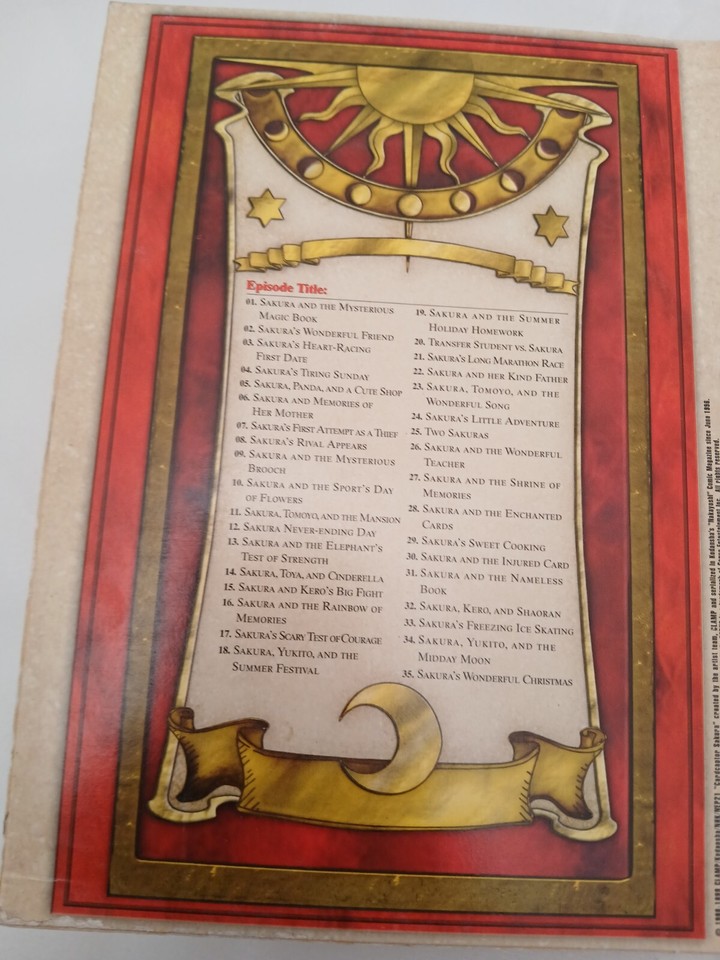 Episode Title:
01. SAKURA AND THE MYSTERIOUS
MAGIC BOOK
02. SAKURA'S WONDERFUL FRIEND
03. SAKURA'S HEART-RACING
FIRST DATE
04. SAKURA'S TIRING SUNDAY
05. SAKURA, PANDA, AND A CUTE SHOP
06. SAKURA AND MEMORIES OF
HER MOTHER
07. SAKURA'S FIRST ATTEMPT AS A THIEF
08. SAKURA'S RIVAL APPEARS
09. SAKURA AND THE MYSTERIOUS
BROOCH
10. SAKURA AND THE SPORT'S DAY
OF FLOWERS
11. SAKURA, TOMOYO, AND THE MANSION
12. SAKURA NEVER-ENDING DAY
13. SAKURA AND THE ELEPHANT'S
TEST OF STRENGTH
14. SAKURA, TOYA, AND CINDERELLA
15. SAKURA AND KERO'S BIG FIGHT
16. SAKURA AND THE RAINBOW OF
MEMORIES
17. SAKURA'S SCARY TEST OF COURAGE
18. SAKURA, YUKITO, AND THE
SUMMER FESTIVAL
19. SAKURA AND THE SUMMER
HOLIDAY HOMEWORK
20. TRANSFER STUDENT VS. SAKURA
21. SAKURA'S LONG MARATHON RACE
22. SAKURA AND HER KIND FATHER
23. SAKURA, TOMOYO, AND THE
WONDERFUL SONG
24. SAKURA'S LITTLE ADVENTURE
25. TWO SAKURAS
26. SAKURA AND THE WONDERFUL
TEACHER
27. SAKURA AND THE SHRINE OF
MEMORIES
28. SAKURA AND THE ENCHANTED
CARDS
29. SAKURA'S SWEET COOKING
30. SAKURA AND THE INJURED CARD
31. SAKURA AND THE NAMELESS
BOOK
32. SAKURA, KERO, AND SHAORAN
33. SAKURA'S FREEZING ICE SKATING
34. SAKURA, YUKITO, AND THE
MIDDAY MOON
35. SAKURA'S WONDERFUL CHRISTMAS
created by the artist team, CLAMP and serialized in Kodansha's "Nakayoshi" Comic Magazine since June 1996.
All rights reserved.